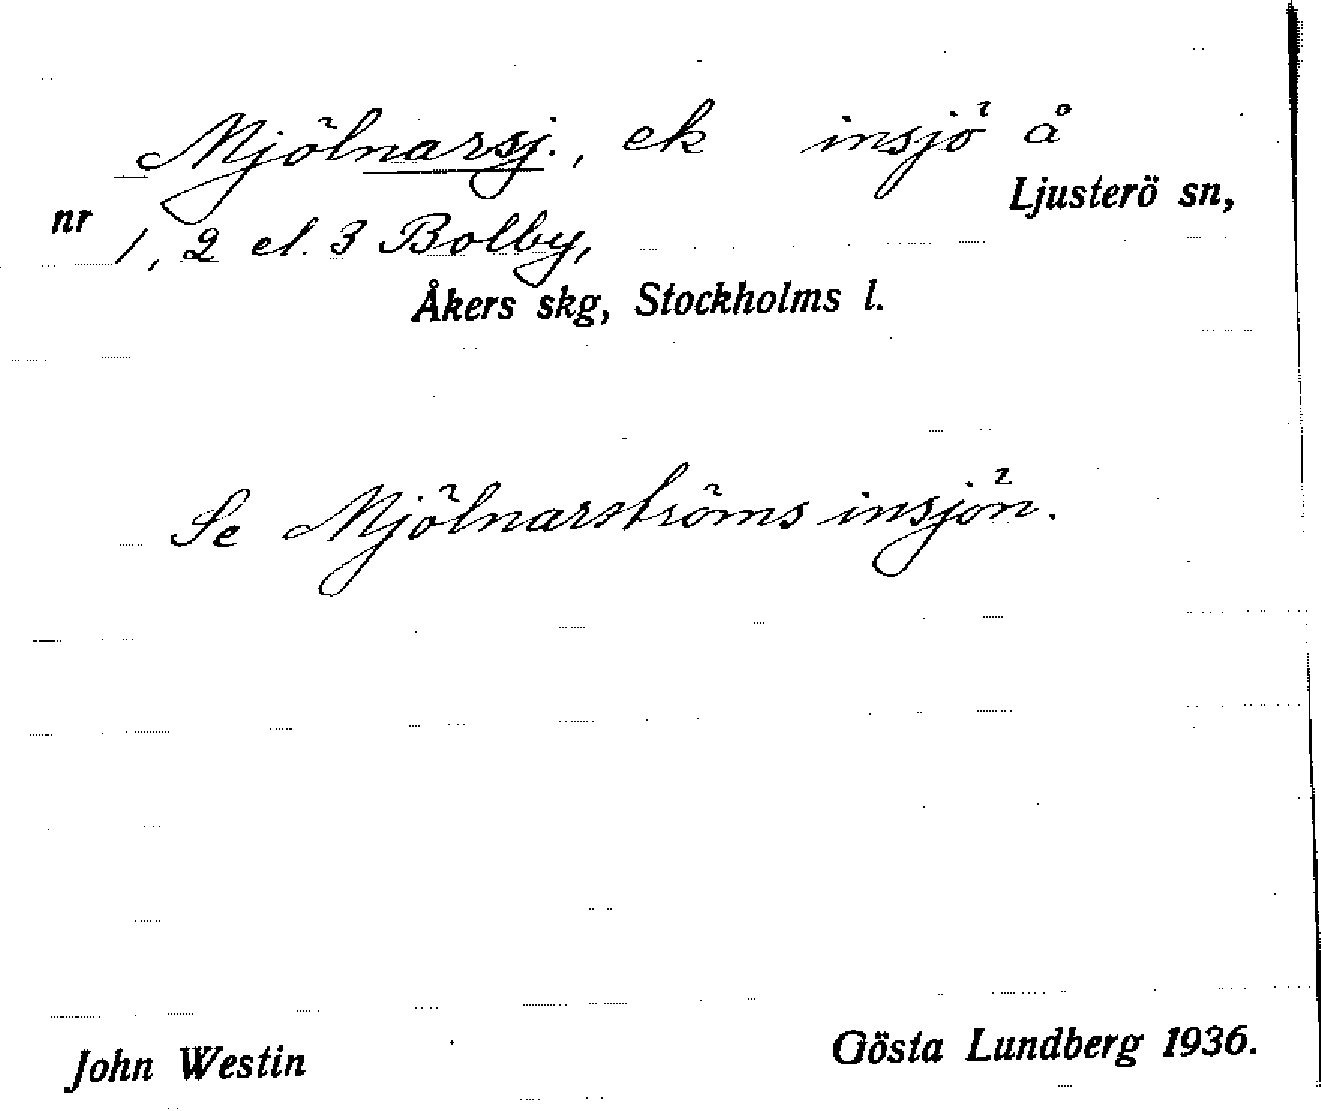 Mjölnarsj., ek insjö å
Ljusterö sn,
nr 1, 2 el. 3 Bolby,
Åkers skg, Stockholms l.
Se Mjölnarströms insjön.
John Westin
Gösta Lundberg 1936.